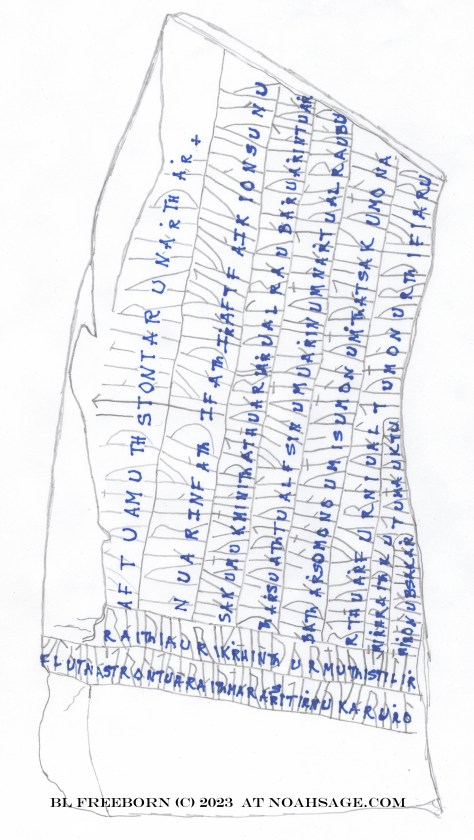 AF T UAMU TH STONTAR UNAR TH AR +
N UARINFATH IFATH IRAFTF AIR IONSUNU
SAKUMUKMINITHATHUARHRUALRAU BARUARINTUAR
THARSUATHTUALFSINUMUARINUMNARTUALRAUBU
BATHARSOMONOUMISUMONUMITHATSAKUMONA
RTHUARFURNIUALTUMONURTHIFIARU
MIRHRAITHKU TUMAUKTU
MIROKUBSAKAR
RAITHIAURIKRHINTH URMUTHISTILIR
FLUTNASTRONTUHRAITHMARARITIRNUKARURO
BL FREEBORN (C) 2023 AT NOAHSAGE.COM